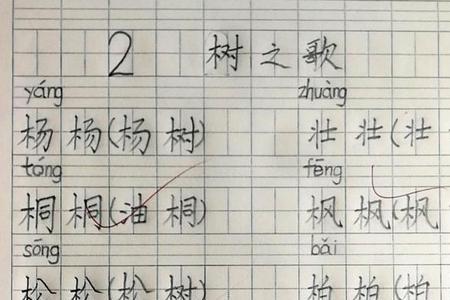 2 树之歌
yáng zhuàng
杨 杨(杨 树) 壮 壮(壮
tóng fēng
桐 桐(油 桐) 枫 枫(枫
sōng bǎi
松 松(松 树) 柏 柏(柏